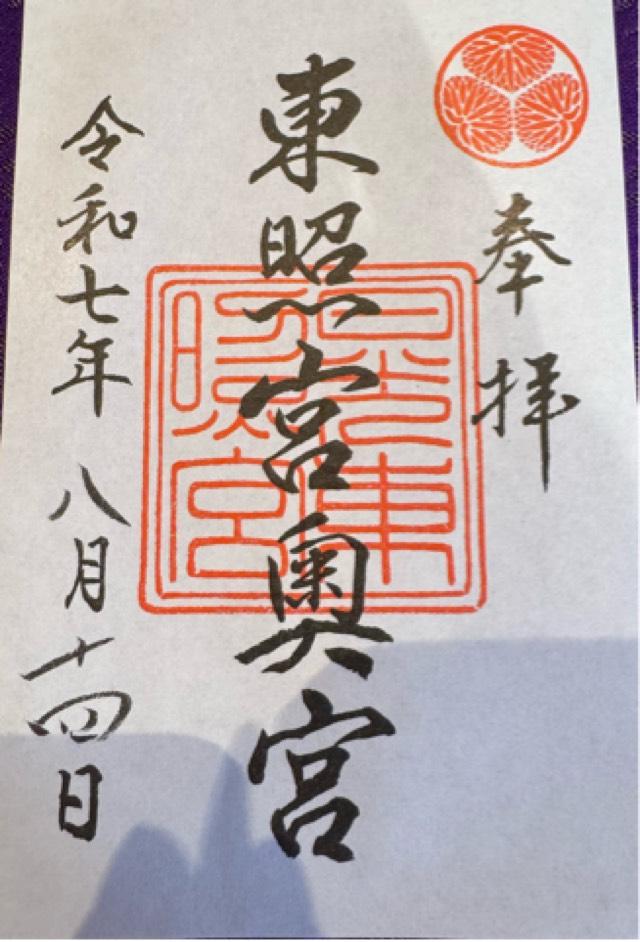 奉拝
東照宮奥宮
日光東照宮
令和七年八月十四日